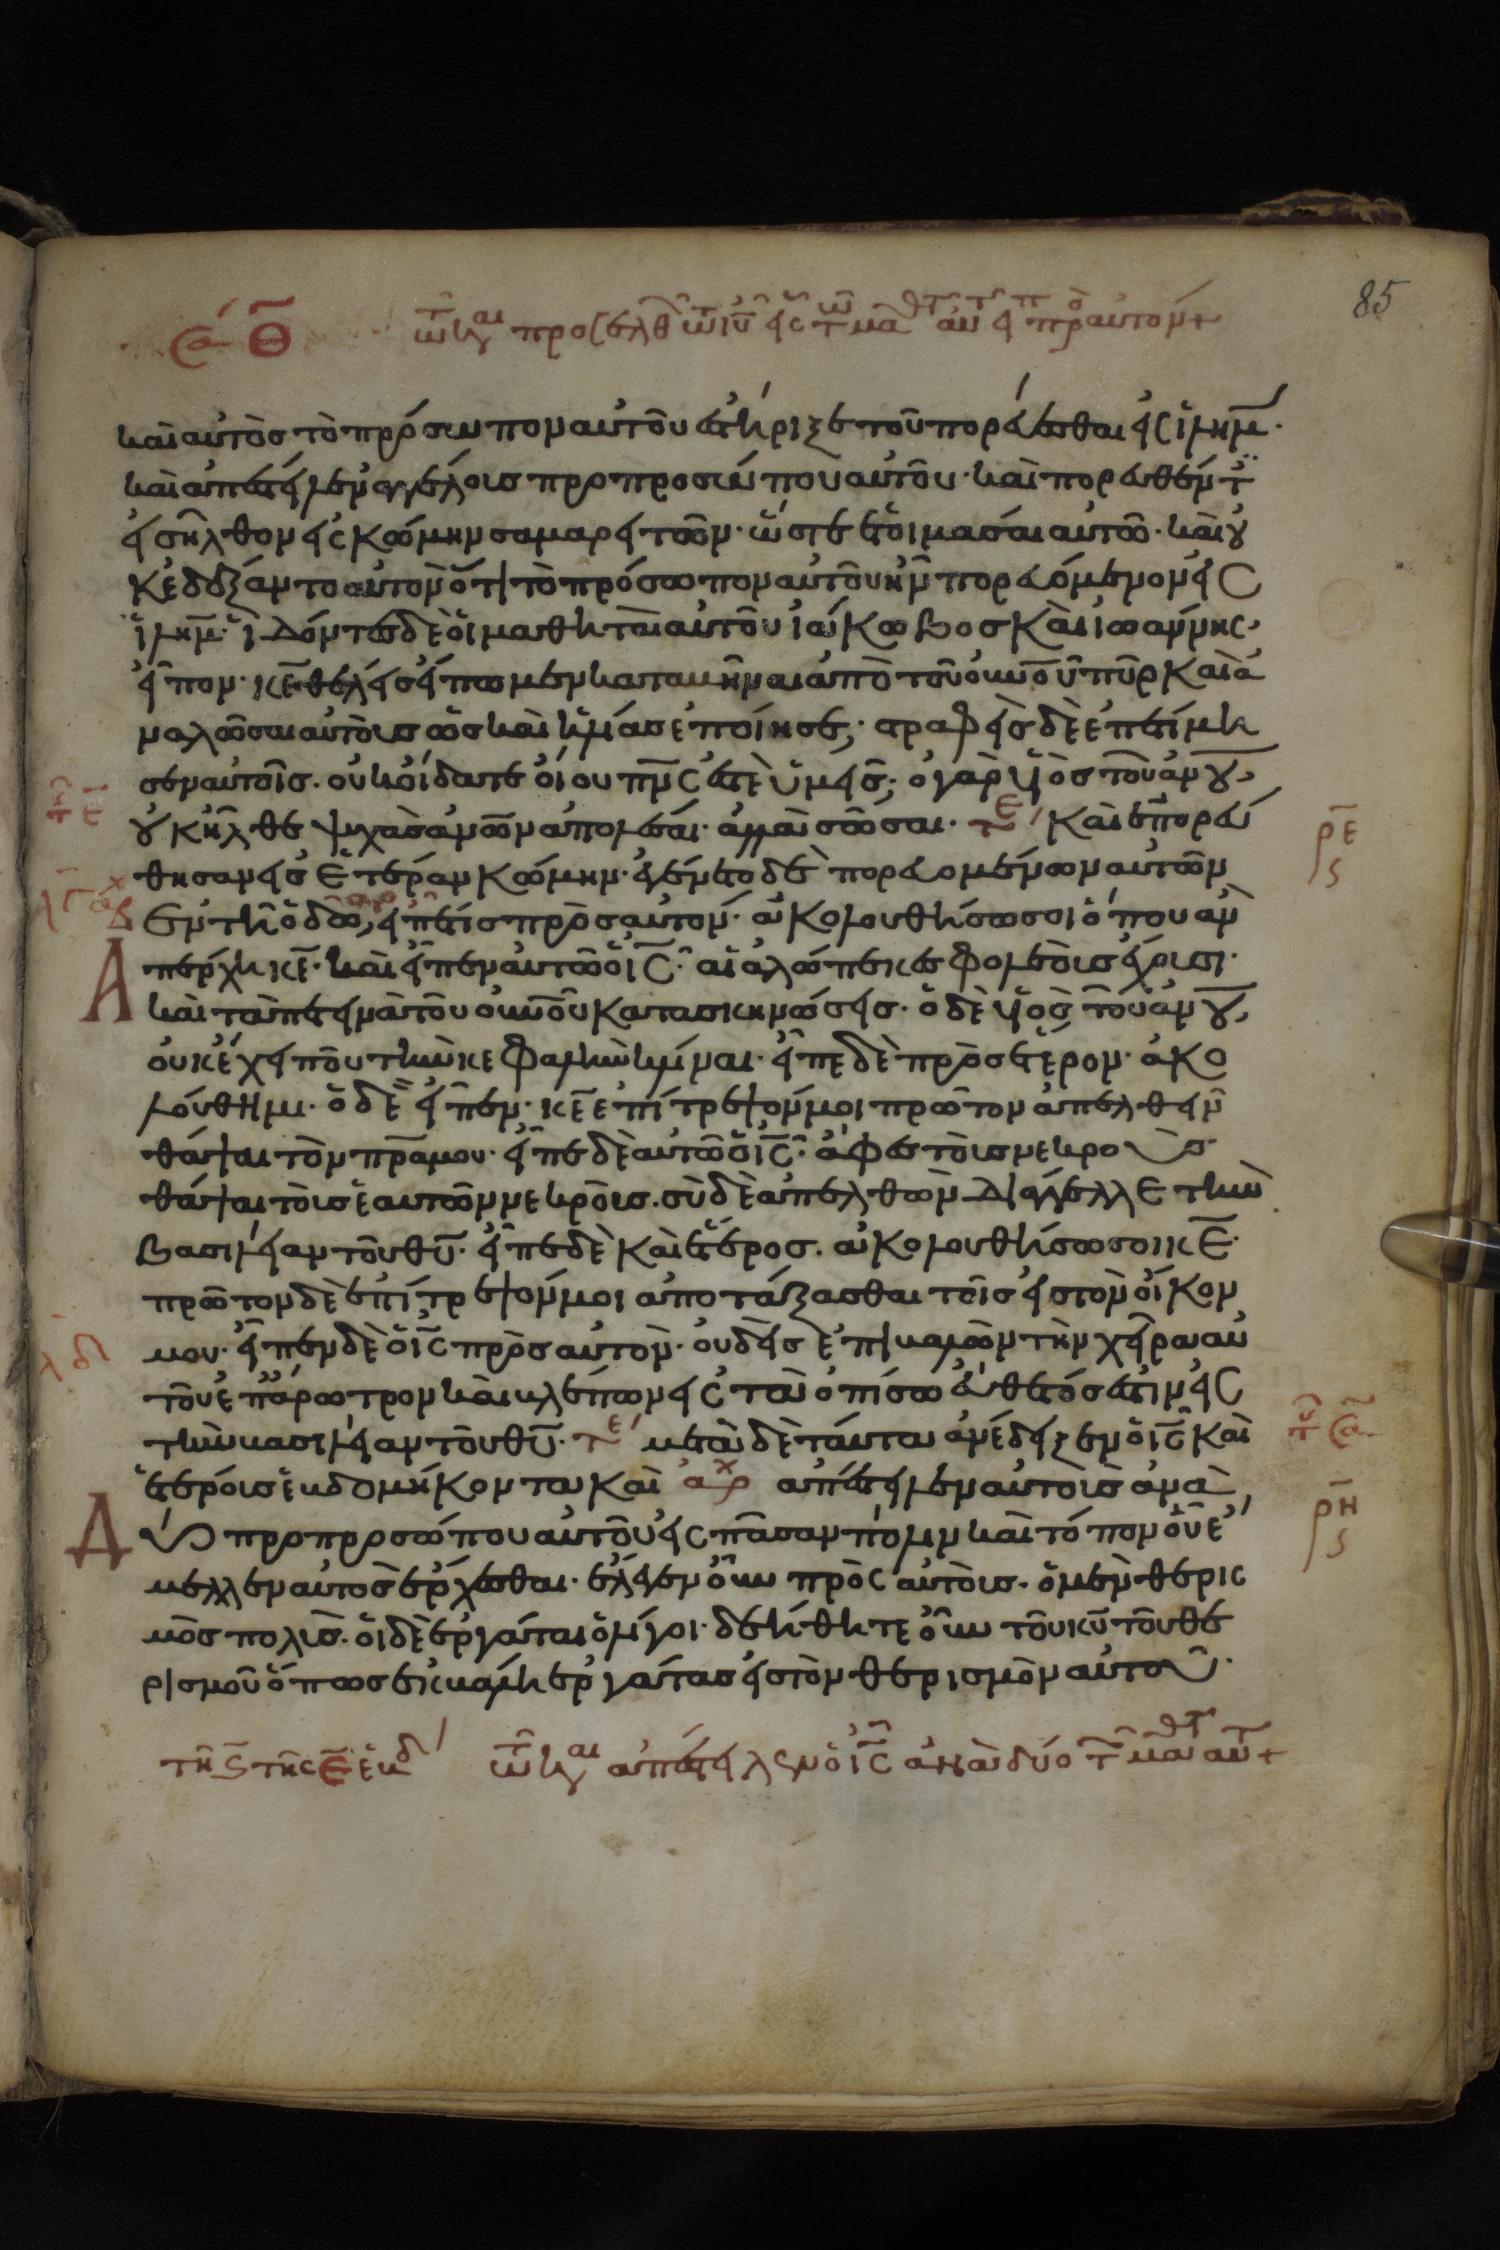 85
καὶ αὐτὸς τὸ πρόσωπον αὐτοῦ ἐστήριξε τοῦ πορεύεσθαι εἰς ἰλημ̅·
καὶ ἀπέστειλεν ἀγγέλους πρὸ προσώπου αὐτοῦ· καὶ πορευθέντ
εἰσῆλθον εἰς κώμην σαμαρειτῶν· ὥστε ἑτοιμάσαι αὐτῶ· καὶ οὐ
κ ἐδέξαντο αὐτὸν ὅτι τὸ πρόσωπον αὐτοῦ ἦν πορευόμενον εἰς
ἰλημ̅· ἰδόντες δὲ οἱ μαθηταὶ αὐτοῦ ἰάκωβος καὶ ἰωάννης·
εἶπον· κε̅ θέλεις εἴπωμεν καταβῆναι ἀπὸ τοῦ οὐνοῦ πῦρ καὶ ἀ
ναλῶσαι αὐτοὺς ὡς καὶ ἡλίας ἐποίησε; στραφεὶς δὲ ἐπετίμη
σεν αὐτοῖς· οὐκ οἴδατε οἵου πν̅ς ἐστὲ ὑμεῖς· ὁ γὰρ υἱὸς τοῦ ἀνου
οὐκ ἦλθε ψυχὰς ἀνῶν ἀπολέσαι· ἀλλὰ σῶσαι· τε καὶ ἐπορεύ
θησαν εἰς ἑτέραν κώμην· ἐγένετο δὲ πορευομένων αὐτῶν
ἐν τῇ ὁδῶ, εἶπέ τις πρὸς αὐτόν· ἀκολουθήσω σοι ὅπου ἂν
ἀπέρχη κε̅· καὶ εἶπεν αὐτῶ ὁ ις̅· αἱ ἀλώπεκες φωλεοὺς ἔχουσι·
καὶ τὰ πετεινὰ τοῦ οὐνοῦ κατασκηνώσεις· ὁ δὲ υἱὸς τοῦ ἀνου,
οὐκ ἔχει ποῦ τὴν κεφαλὴν κλίναι· εἶπε δὲ πρὸς ἕτερον· ἀκο
λούθει μοι· ὁ δὲ εἶπεν· κε̅ ἐπίτρεψόν μοι πρῶτον ἀπελθεῖν
θάψαι τὸν πρ̅α μου· εἶπε δὲ αὐτῶ ὁ ις̅· ἄφες τοὺς νεκροὺς
θάψαι τοὺς ἑαυτῶν νεκρούς· σὺ δὲ ἀπελθὼν διάγγελλε τὴν
βασιλείαν τοῦ θυ̅· εἶπε δὲ καὶ ἕτερος· ἀκολουθήσω σοι κε̅·
πρῶτον δὲ ἐπίτρεψόν μοι ἀποτάξασθαι τοῖς εἰς τὸν οἶκον
μου· εἶπεν δὲ ὁ ις̅ πρὸς αὐτόν· οὐδεὶς ἐπιβαλὼν τὴν χεῖρα αὐ
τοῦ ἐπ' ἄροτρον καὶ βλέπων εἰς τὰ ὀπίσω εὔθετός ἐστιν εἰς
τὴν βασιλείαν τοῦ θυ̅· τε μετὰ δὲ ταῦτα ἀνέδειξεν ὁ ις̅ καὶ
ἑτέρους ἑβδομήκοντα καὶ αρχ ἀπέστειλεν αὐτοὺς ἀνὰ
δύο πρὸ προσώπου αὐτοῦ εἰς πᾶσαν πόλιν καὶ τόπον οὗ ἔ
μελλεν αὐτὸς ἔρχεσθαι· ἔλεγεν οὖν πρὸς αὐτούς· ὁ μὲν θερισ
μὸς πολύς· οἱ δὲ ἐργάται ὀλίγοι· δεήθητε οὖν τοῦ κυ̅ τοῦ θε
ρισμοῦ ὅπως ἐκβάλη ἐργάτας εἰς τὸν θερισμὸν αὐτοῦ·